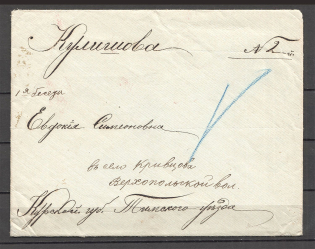 Кулишова
№ 2й.
Евдокія Симеоновна
въ село Кривцова
Верхопольской вол.
Курской губ. Тимского уѣзда